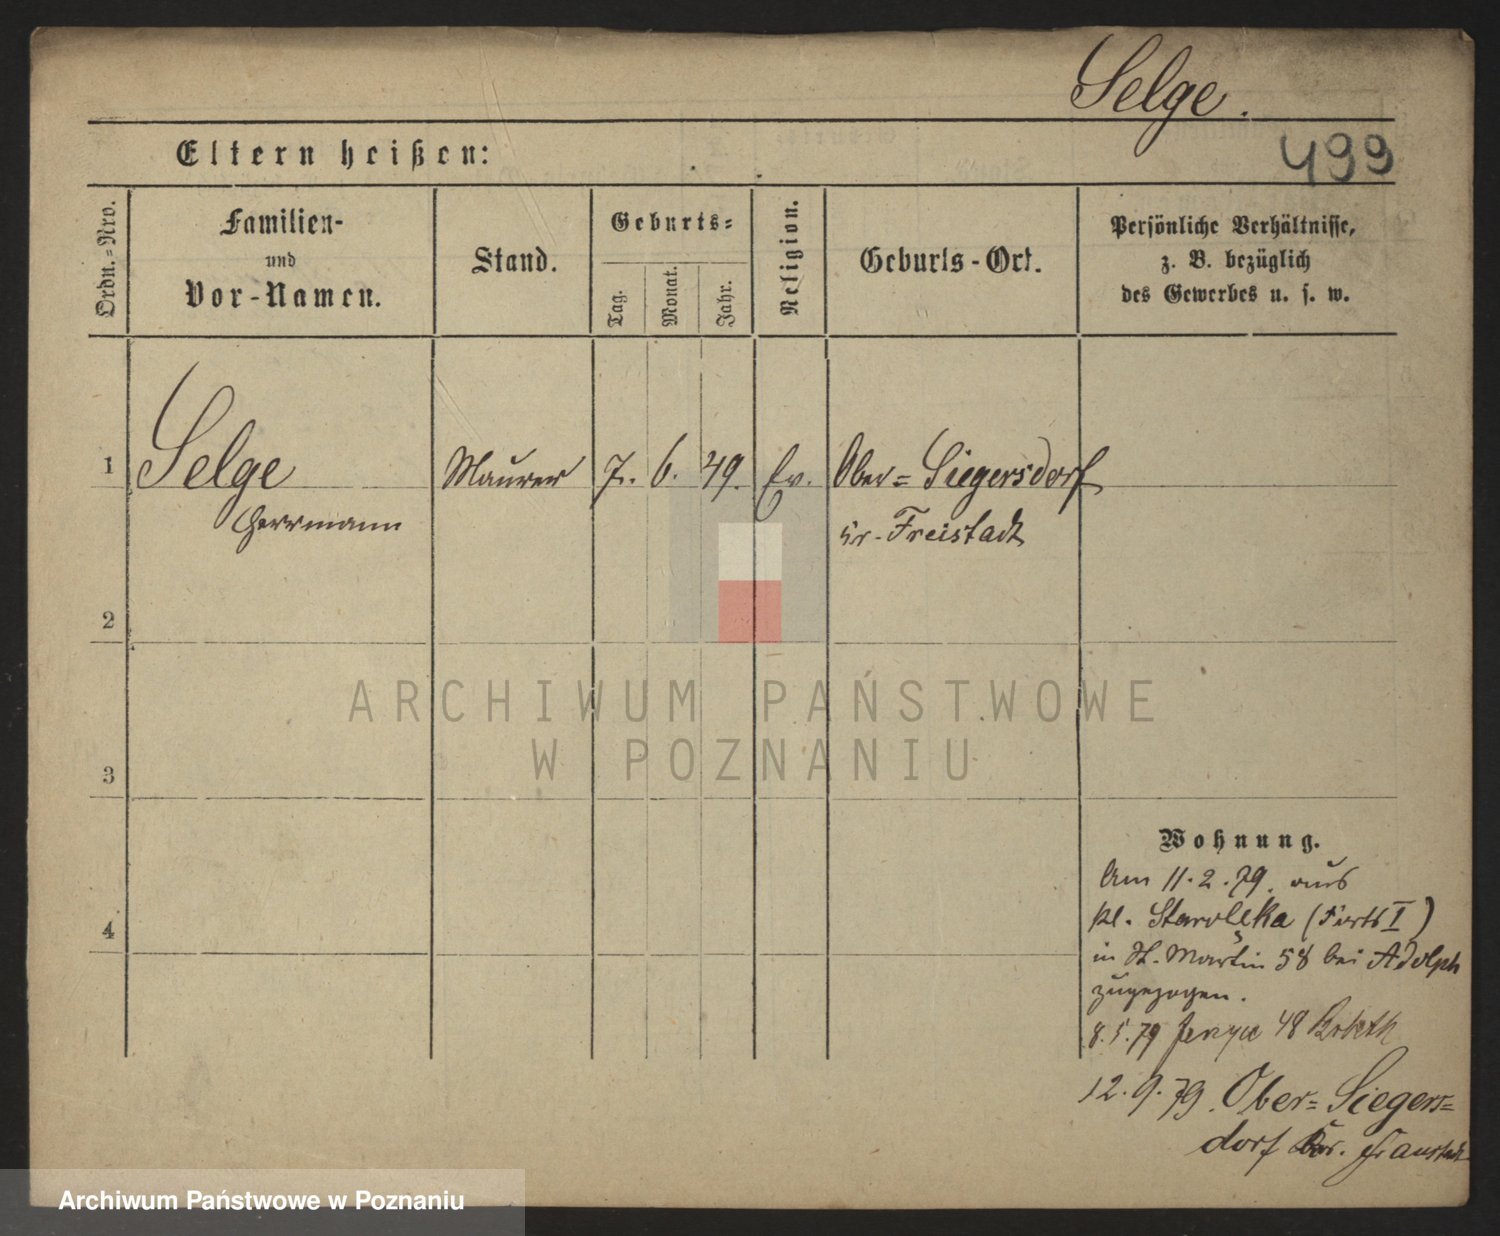 Selge.
499
Eltern heißen:
Ordn.=Nro.
Familien-
und
Vor-Namen.
Stand.
Geburts=
Tag.
Monat.
Jahr.
Religion.
Geburts-Ort.
Persönliche Verhältnisse,
z. B. bezüglich
des Gewerbes u. s. w.
1
Selge
Herrmann
Maurer
7.
6.
49.
Ev.
Ober=Siegersdorf
Kr. Freistadt
2
3
4
ARCHIWUM PAŃSTWOWE
W POZNANIU
Wohnung.
Am 11.2.79. aus
Kl. Starolęka (Forts I)
in St. Martin 58 bei Adolph
zugezogen.
8.5.79 48
12.9.79. Ober=Siegers=
dorf Kr. Fraustadt
Archiwum Państwowe w Poznaniu